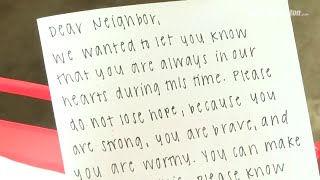 Dear Neighbor,
We wanted to let you know
that you are always in our
hearts during this time. Please
do not lose hope, because you
are strong, you are brave, and
you are worthy. You can make
Please know